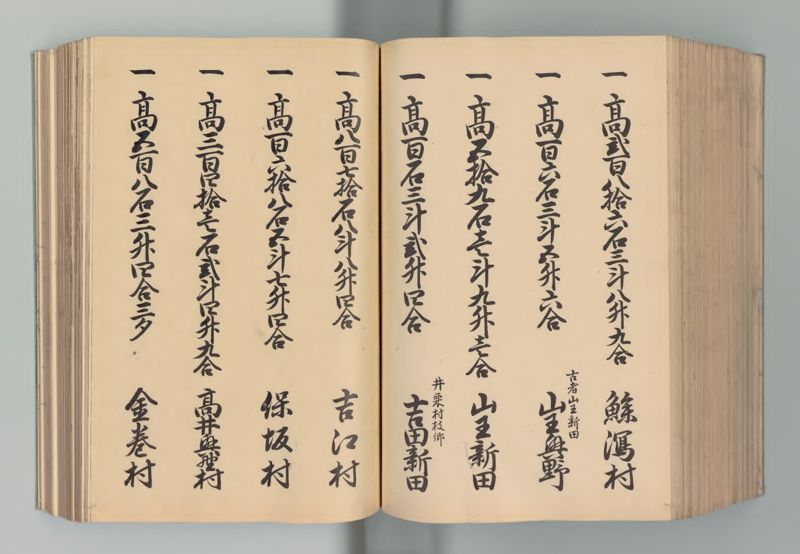 一 高弐百八拾六石三斗八升九合
鯵潟村
一 高百六石三斗五升六合
古者山王新田
山王興野
一 高五拾九石壱斗九升壱合
山王新田
一 高百石三斗弐升四合
井栗村枝郷
吉田新田
一 高八百七拾石八斗八升四合
吉江村
一 高百六拾八石五斗七升四合
保坂村
一 高三百四拾壱石弐斗四升九合
高井興野村
一 高五百八石三升四合三夕
金巻村